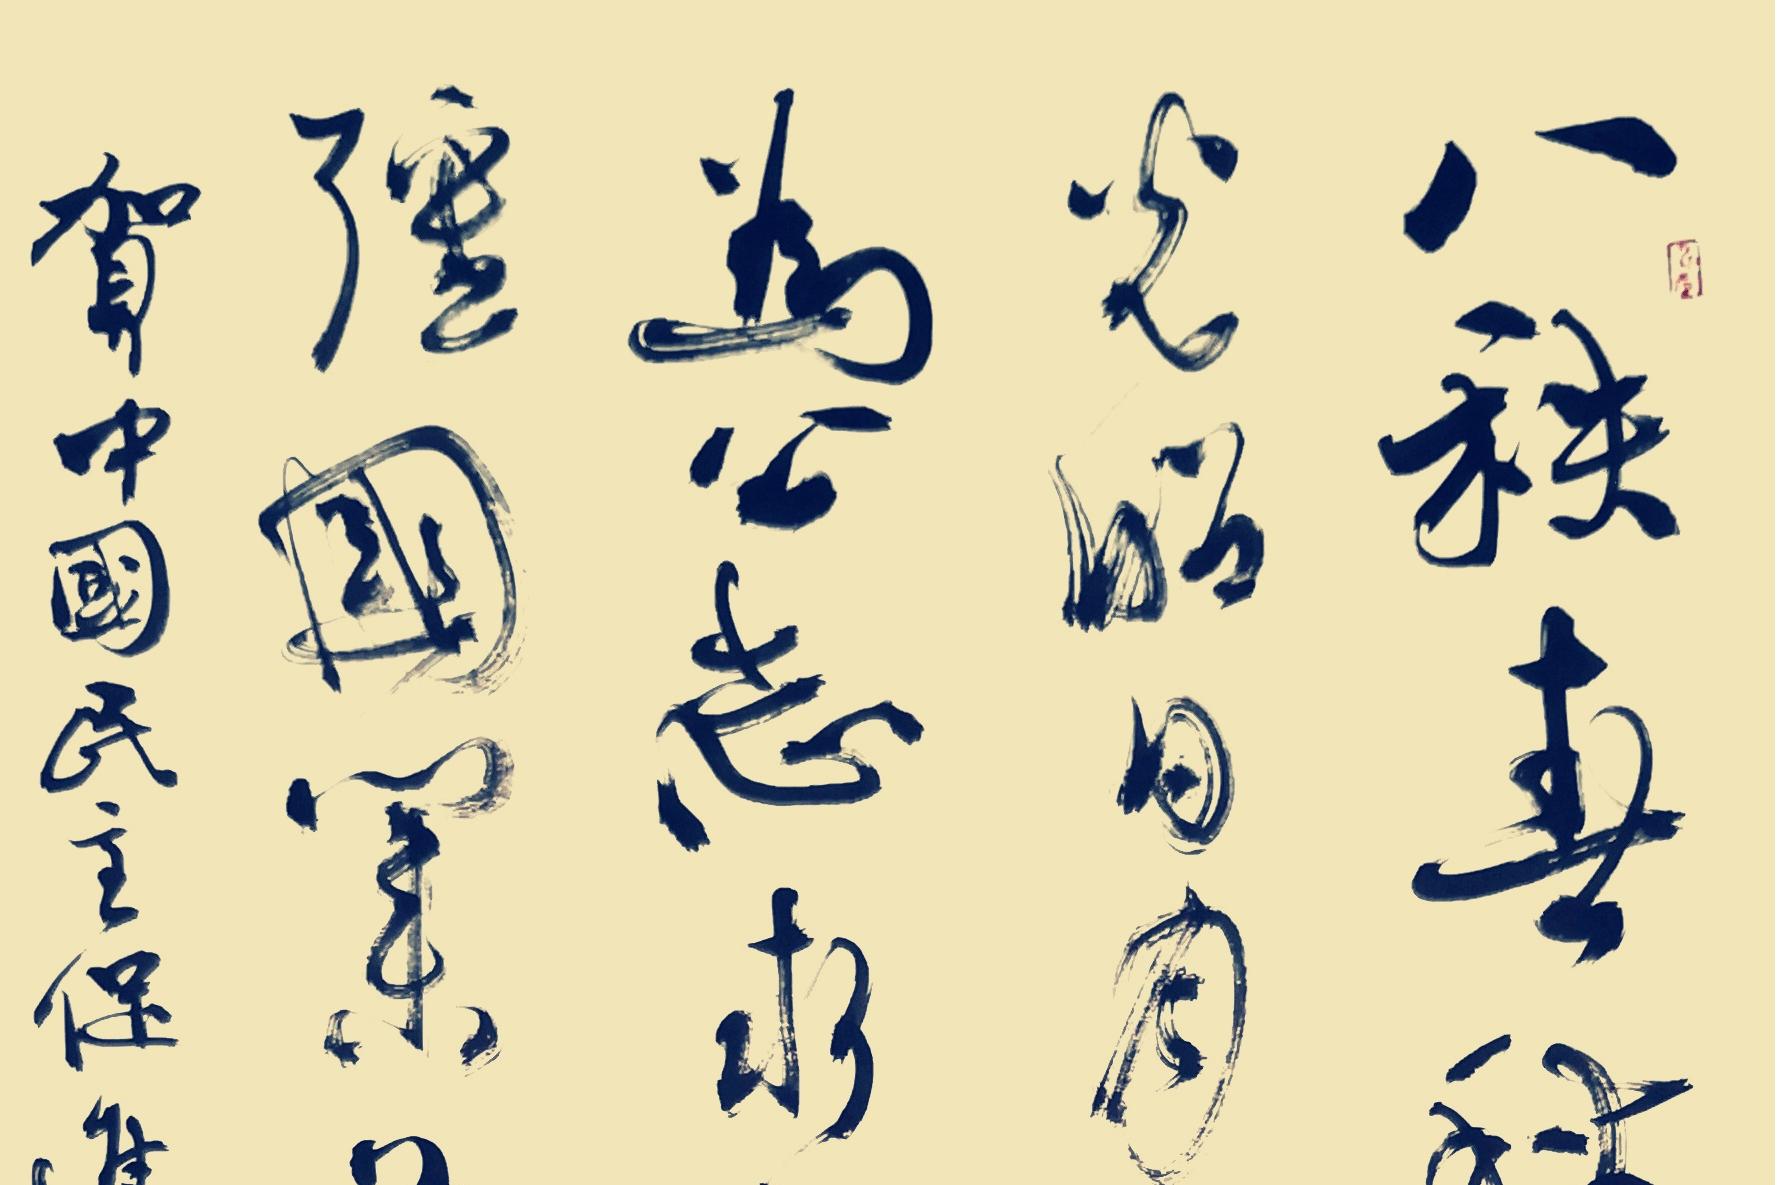 八秩春秋
光昭日月
為公志
彊國業
賀中國民主促進